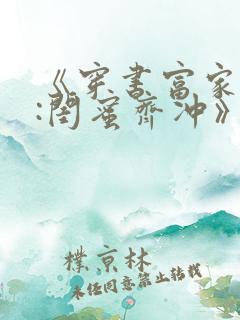 《穿书富家
:闺蜜齐冲》
樸京林
未经同意禁止转载